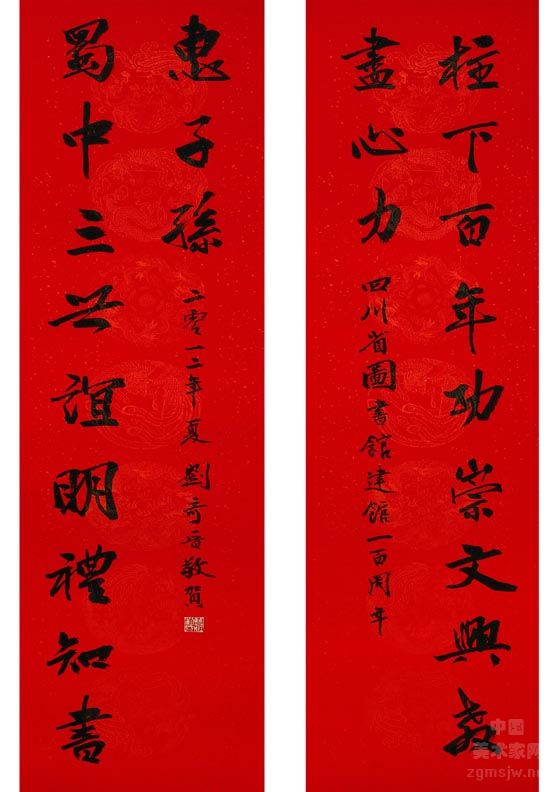 柱下百年功崇文興教
盡心力
四川省圖書館建館一百周年
蜀中三世誼明禮知書
惠子孫
二零一二年夏 劉奇晉敬賀
中国
美术家网
zgmsjw.ne